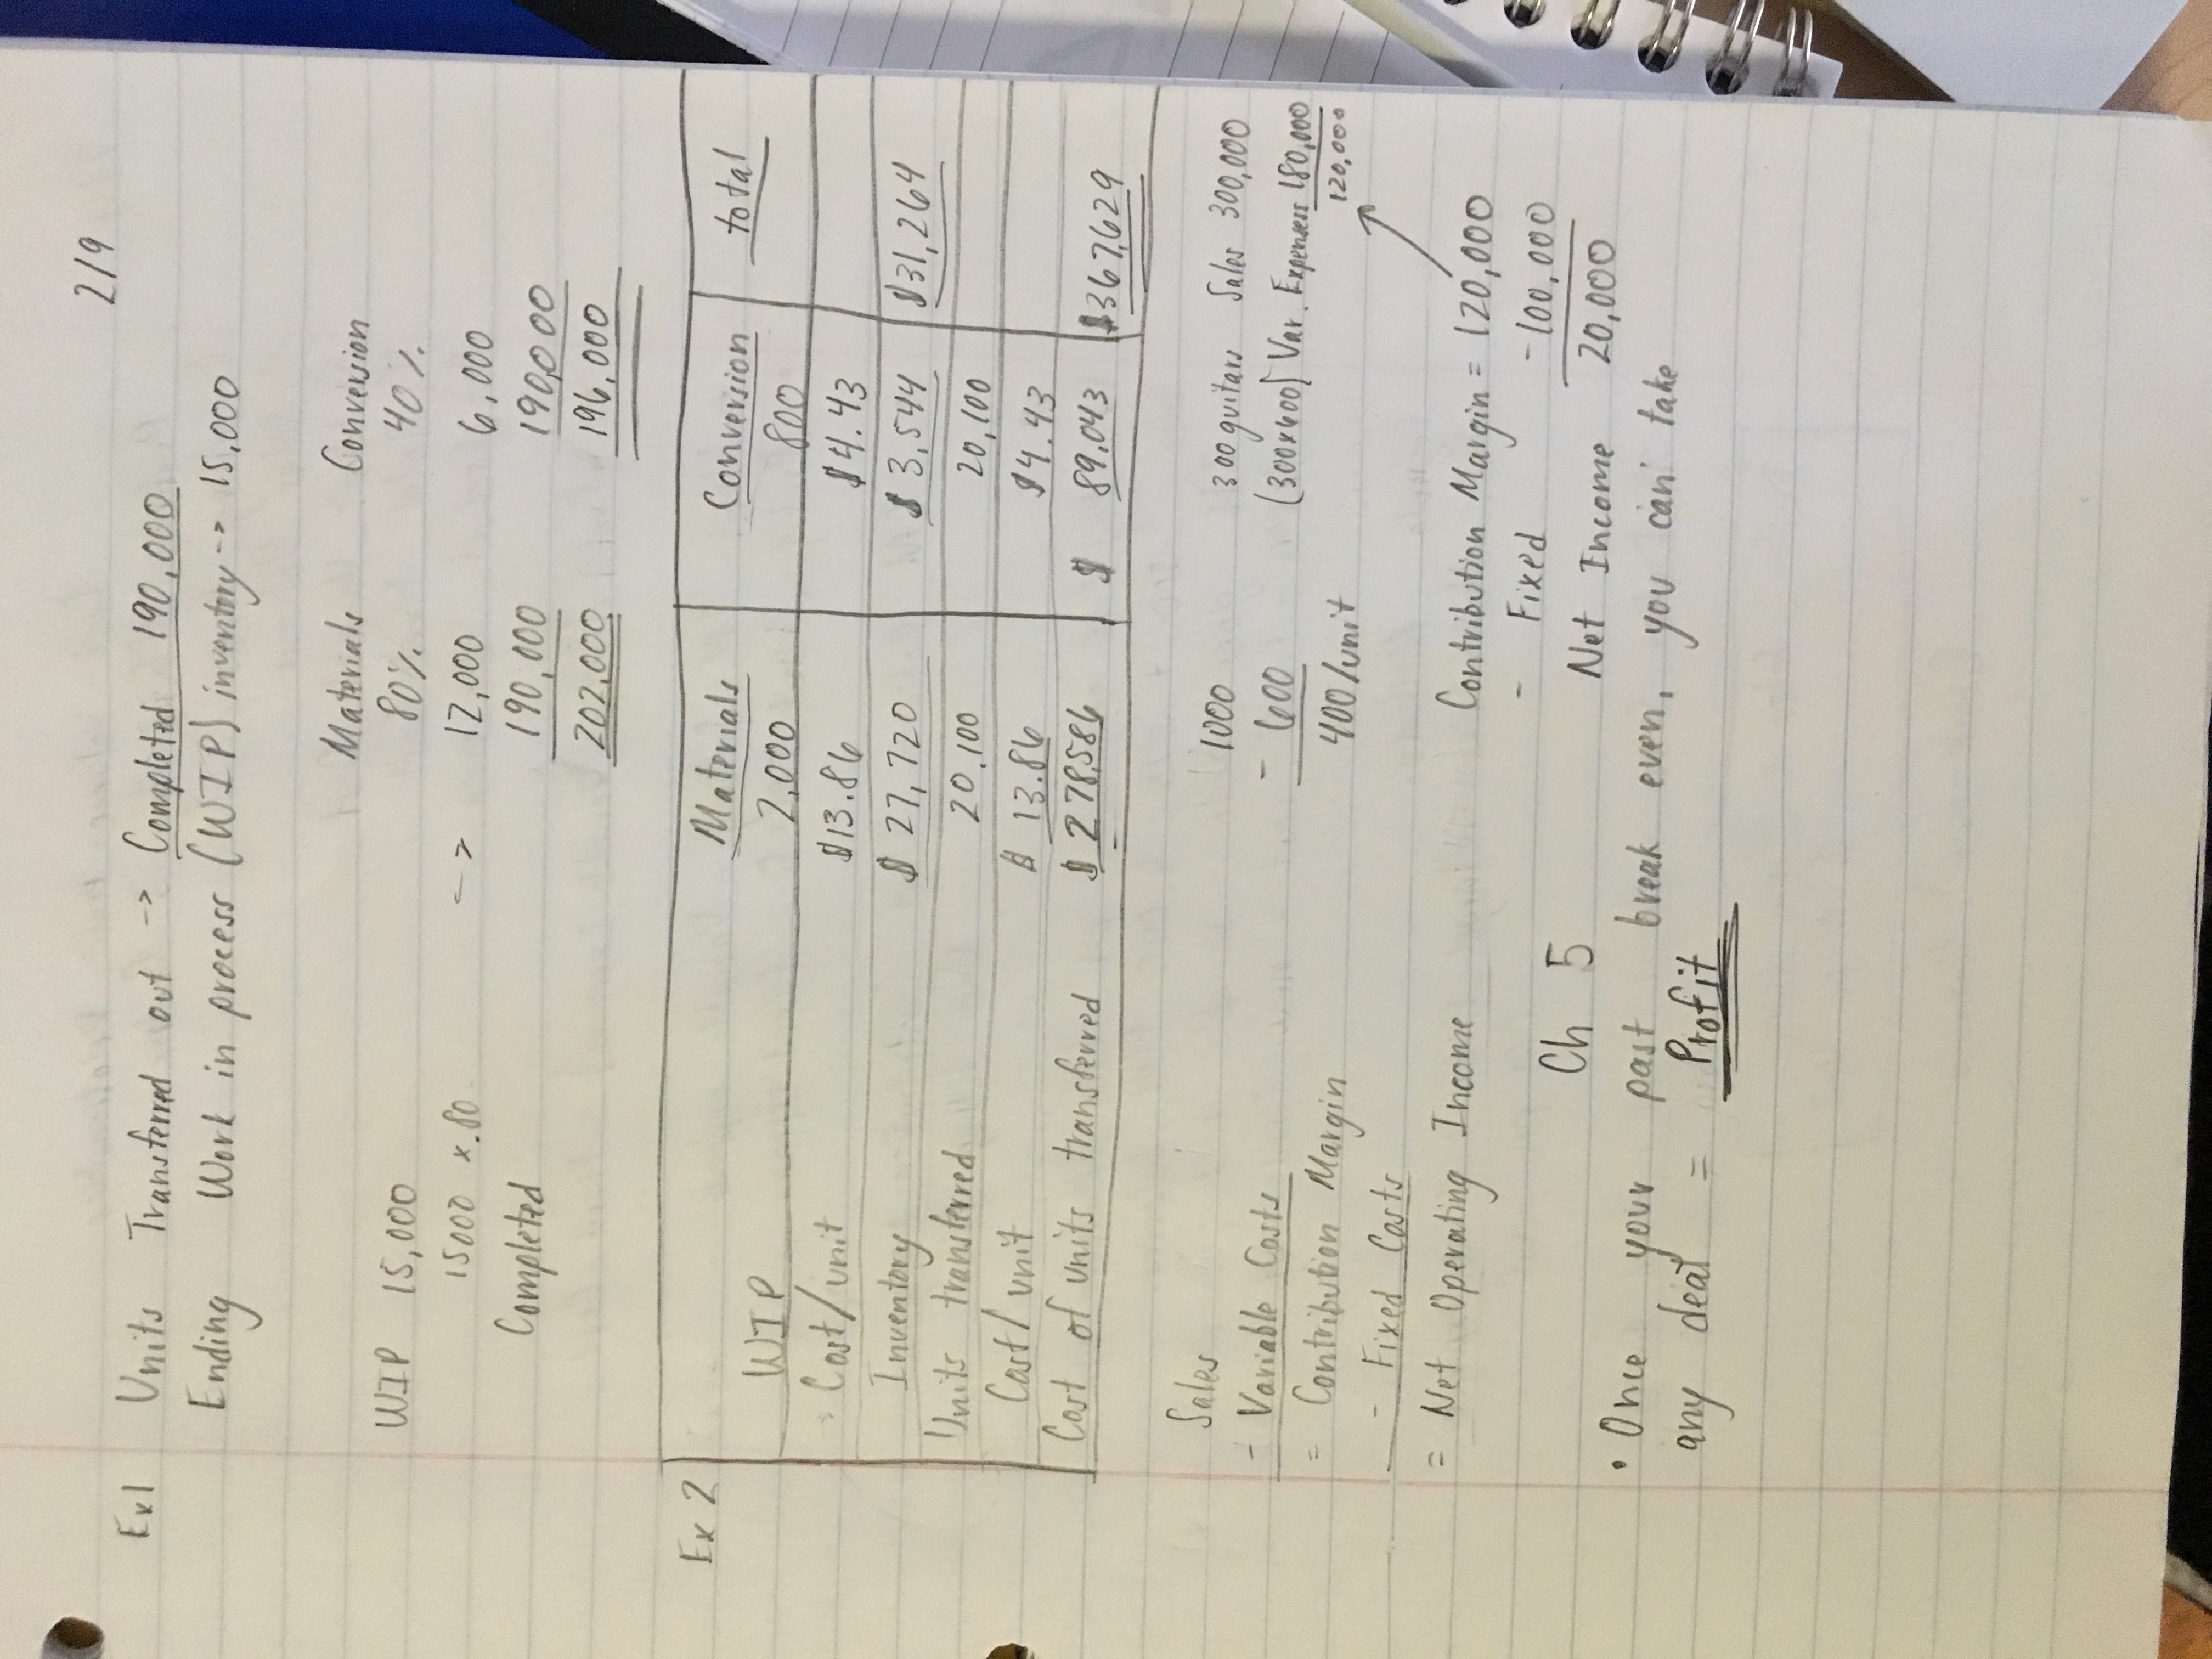 2/9
Ex1 Units Transferred out -> Completed 190,000
Ending Work in process (WIP) inventory -> 15,000
Materials Conversion
WIP 15,000 80% 40%
15000 x .80 -> 12,000 6,000
Completed 190,000 190,000
202,000 196,000
Ex 2 Materials Conversion total
WIP 2,000 800
Cost/unit $13.86 $4.43
Inventory $27,720 $3,544 $31,264
Units transferred 20,100 20,100
Cost/unit $13.86 $4.43
Cost of units transferred $278,586 $89,043 $367,629
Sales 1000 300 guitars Sales 300,000
- Variable Costs - 600 (300x400) Var. Expenses 180,000
= Contribution Margin 400/unit 120,000
- Fixed Costs
= Net Operating Income Contribution Margin = 120,000
- Fixed - 100,000
Ch 5 Net Income 20,000
• Once your past break even, you can take
any deal = Profit